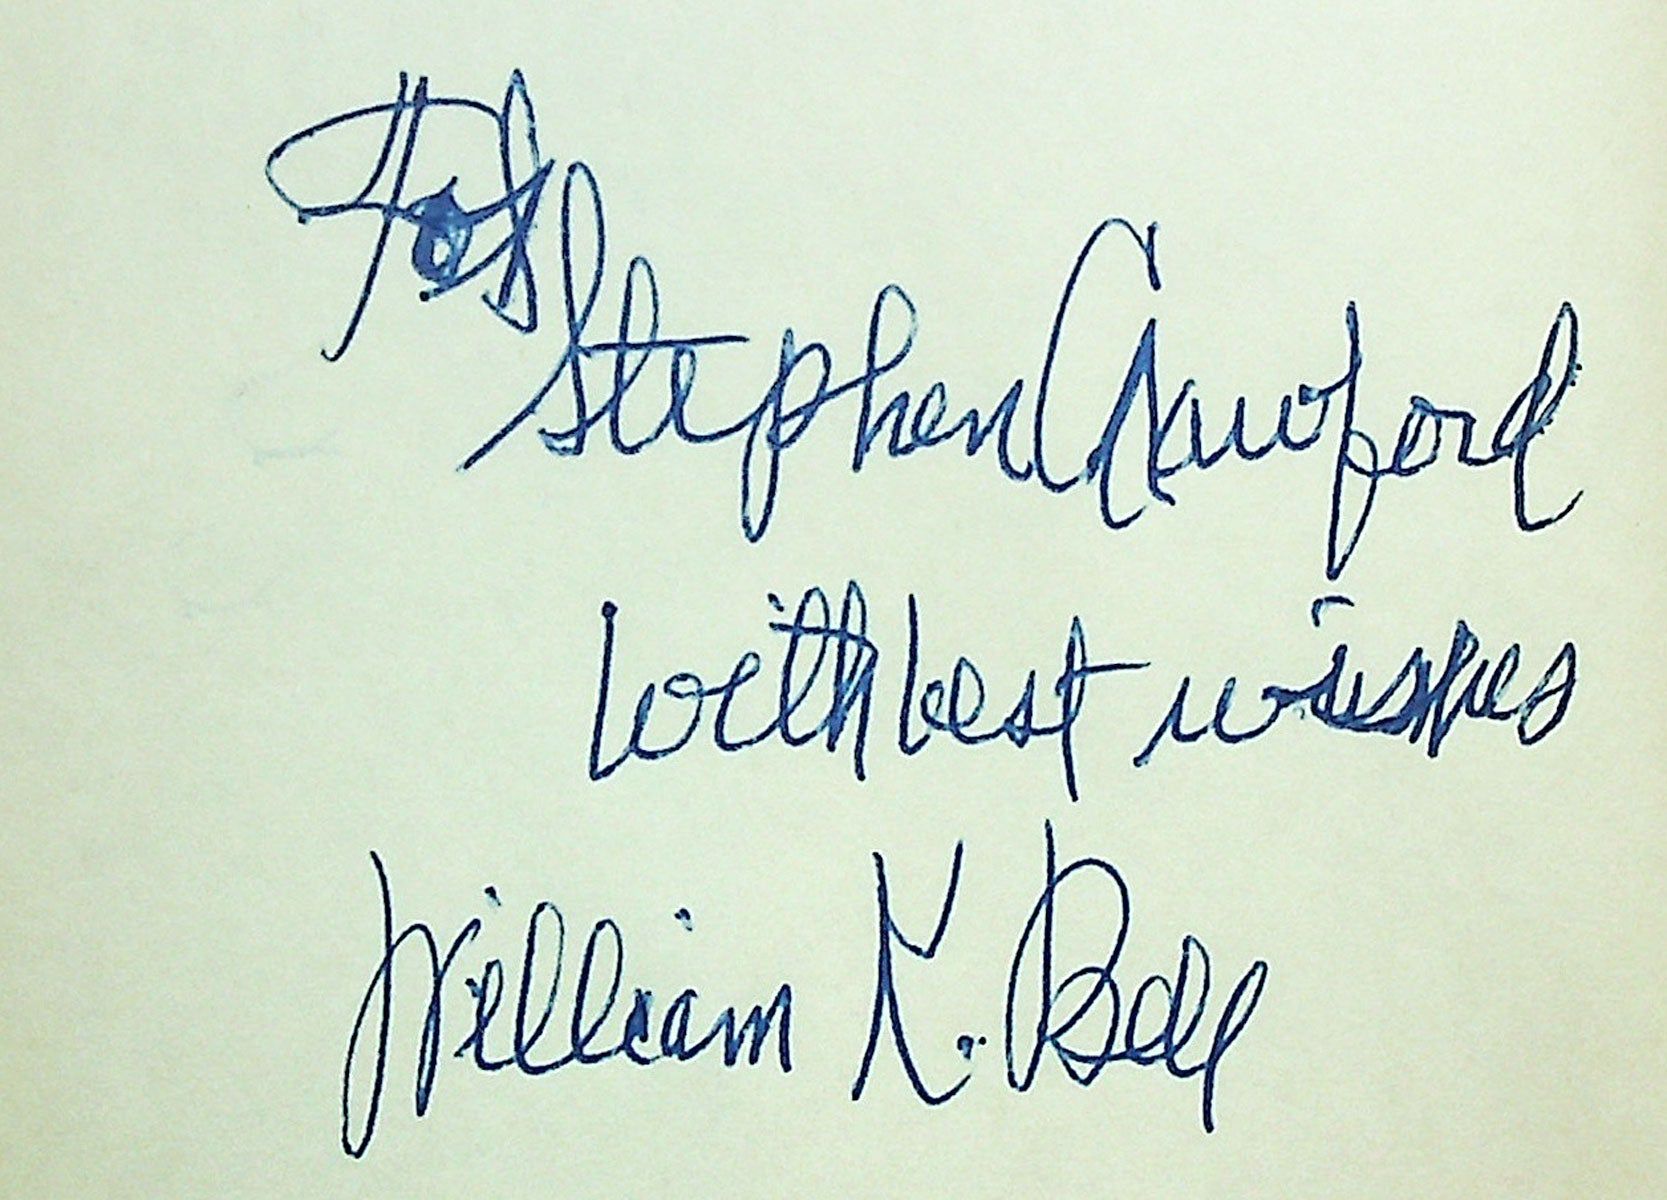 For
Stephen Crawford
with best wishes
William K. Bell